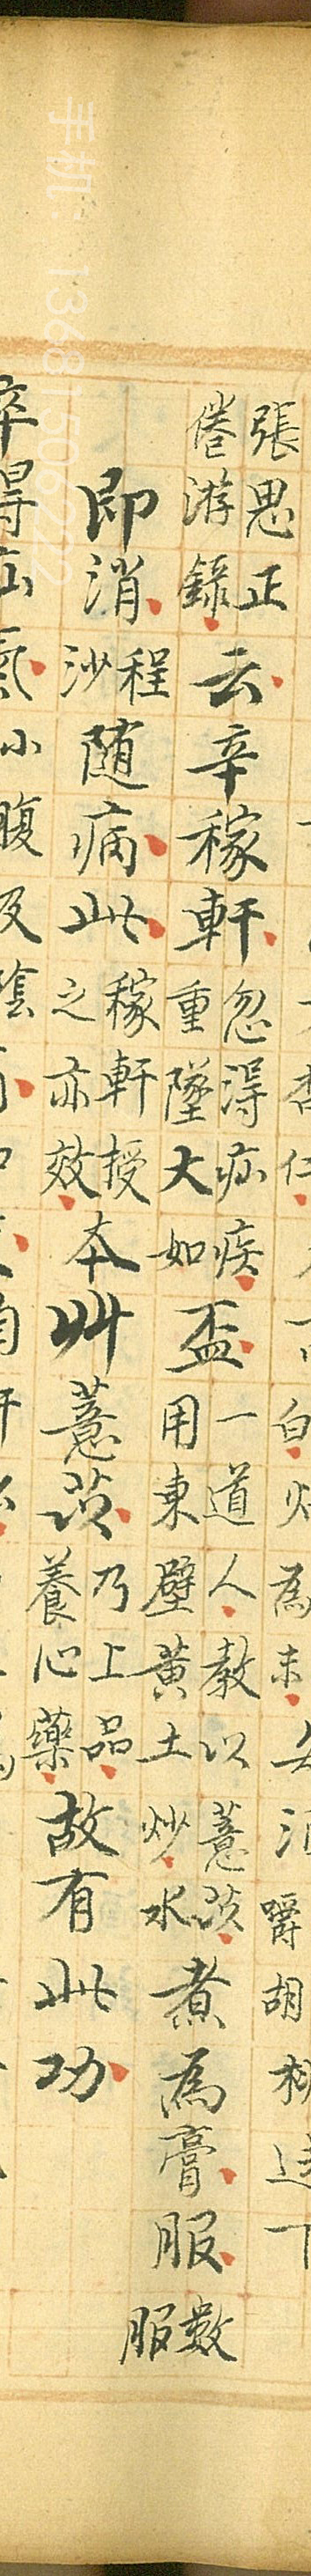 杏仁
白炒為末
嚼胡桃送下
張思正倦游錄云辛稼軒忽得疝疾重墜大如盃一道人教以薏苡用東壁黃土炒水煮為膏服數服
即消程沙随病此稼軒授之亦效本艸薏苡乃上品養心藥故有此功
卒得疝氣小腹及陰
手机：